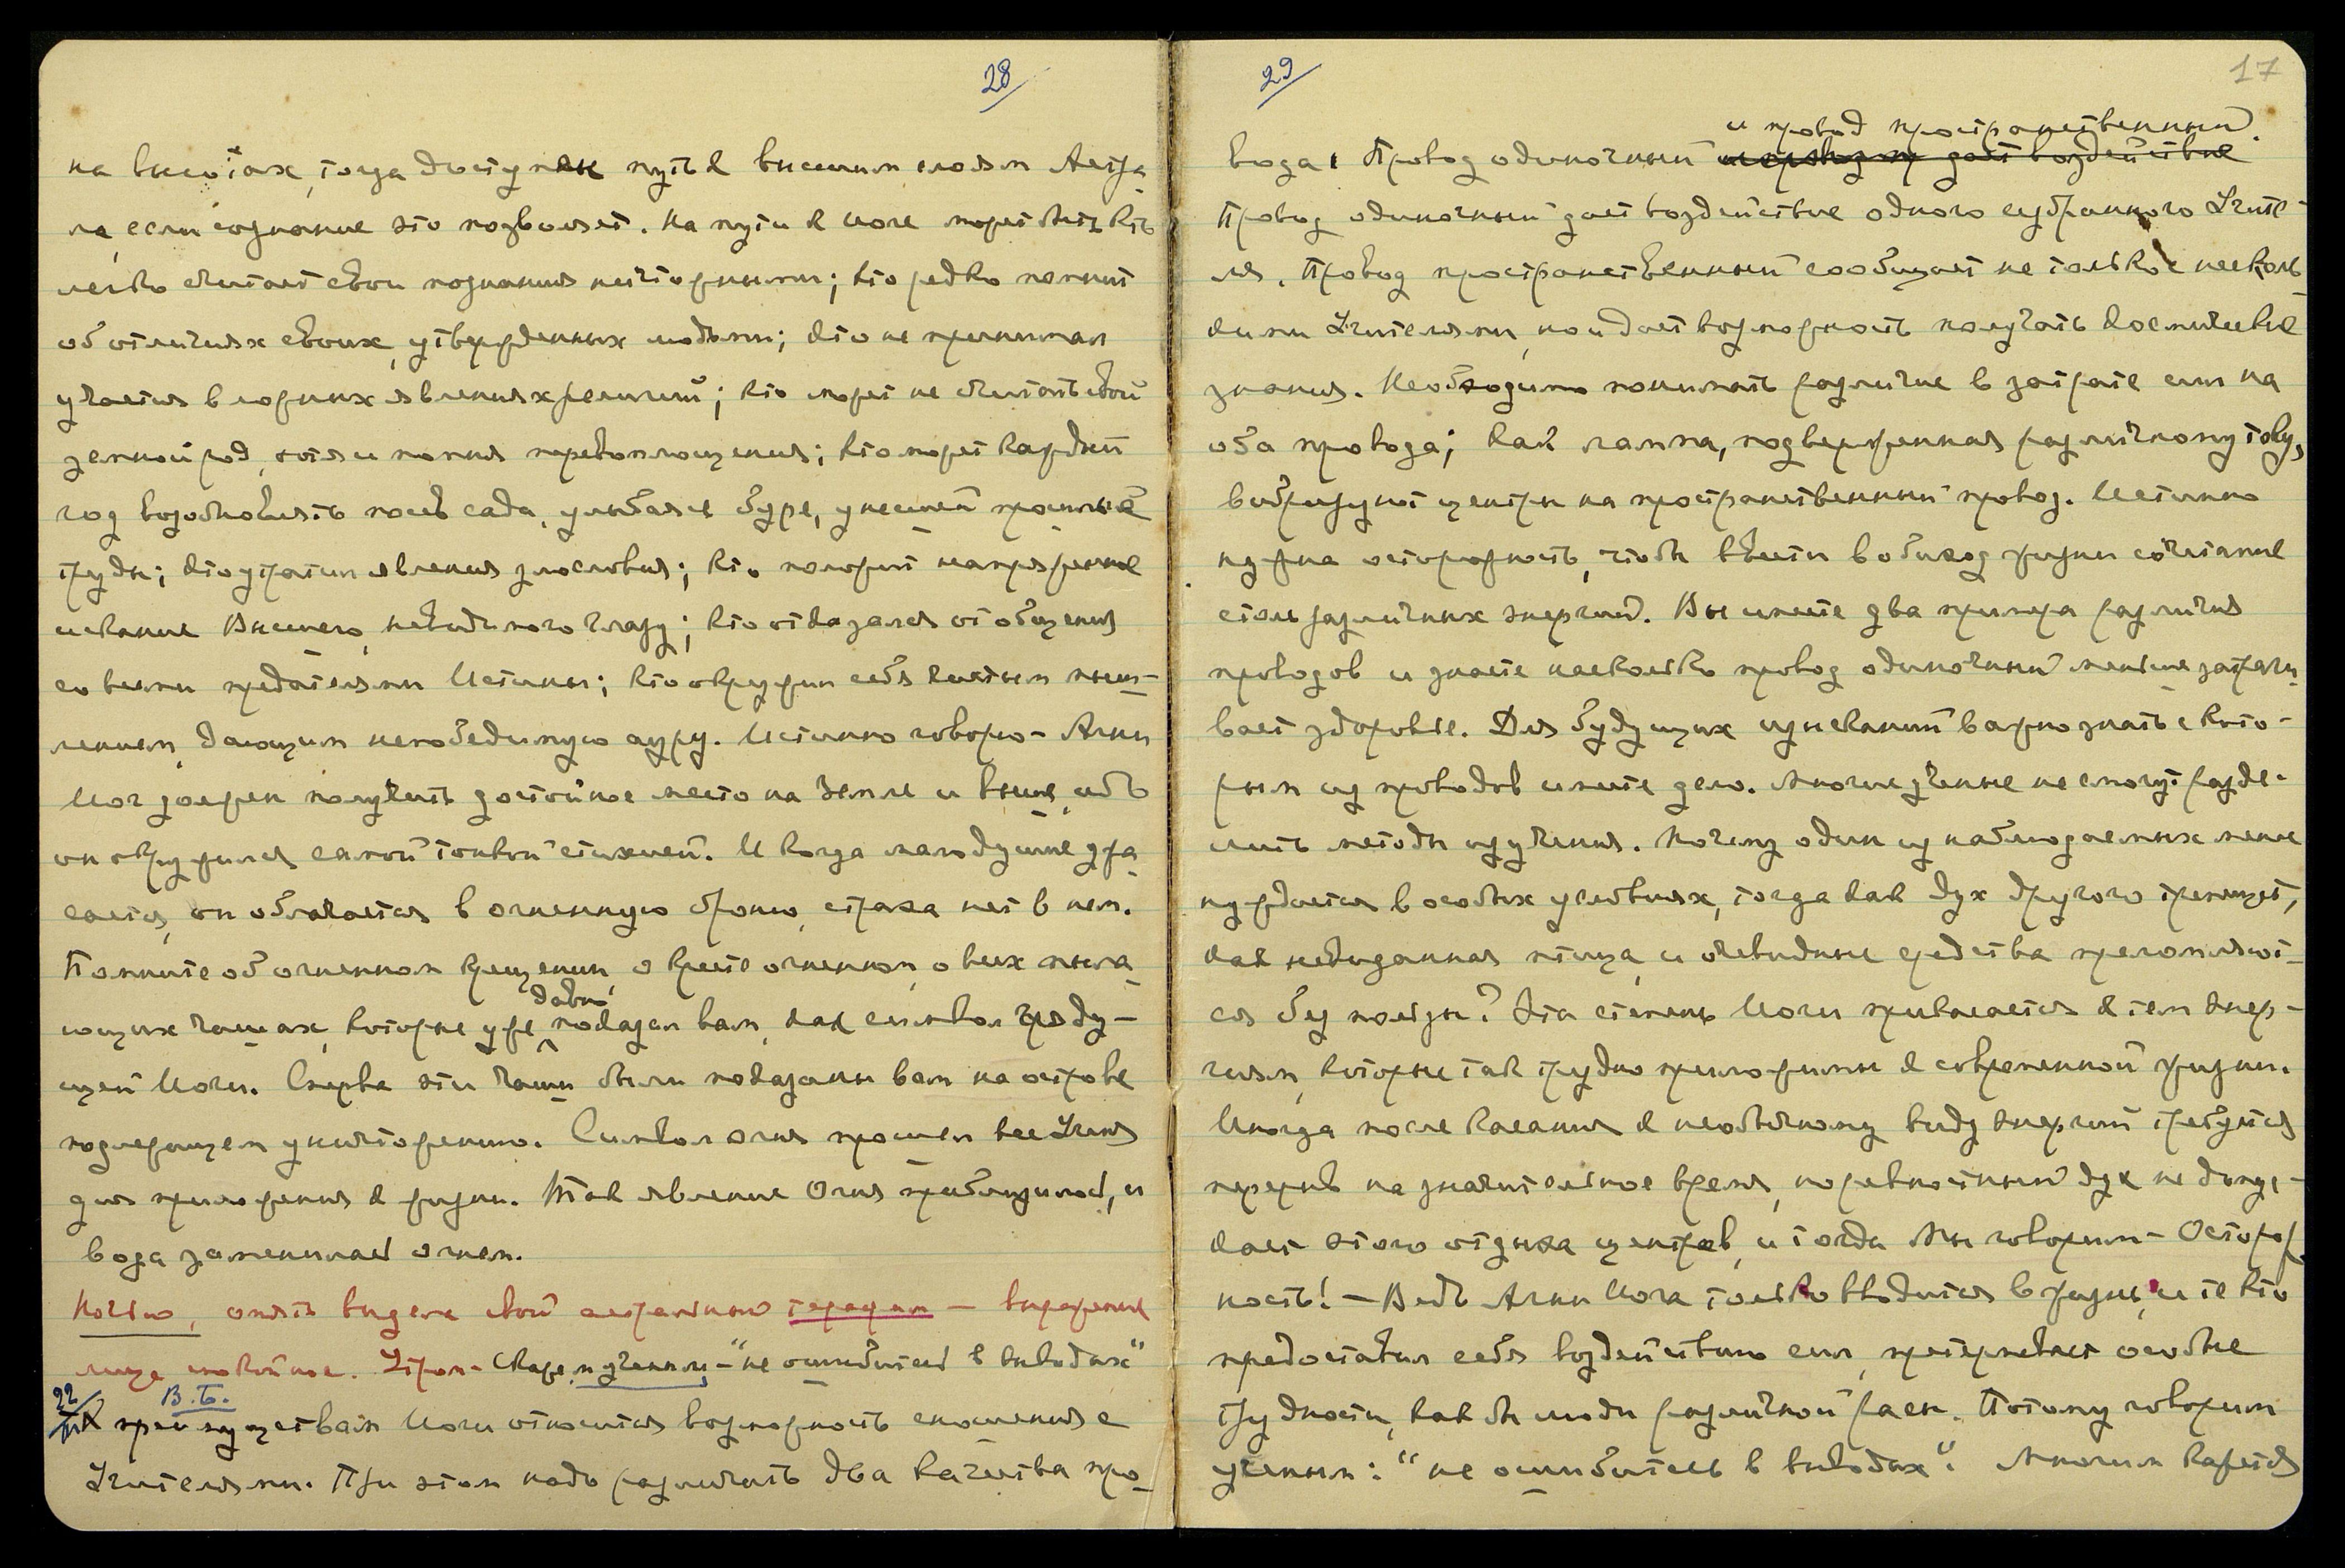 28
на высотах, тогда доступен путь к высшим слоям Астра-
ла, если сознание это позволяет. На пути к Йоге может быть кто
легко считает свои познания ничтожными; кто редко помнит
об отличиях своих, утвержденных людьми; кто не принимал
участия в ложных явлениях религий; кто может не считать свой
земной род, хотя и помня перевоплощения; кто может каждый
год возобновлять посев сада, улыбаясь буре, унесшей прошлые
труды; кто утратил явления злословия; кто положит напряжение
искание Высшего, невидимого глазу; кто отказался от общения
со всеми предателями Истины; кто окружил себя чистым мыш-
лением, дающим непобедимую ауру. Истинно говорю – Агни
Йог должен получить достойное место на Земле и выше, ибо
он окружился самой тонкой стихией. И когда малодушие ужа-
сается, он облачается в огненную броню, страха нет в нем.
Помните об огненном крещении, о кресте огненном, о всех пыла-
ющих чашах, которые уже давно показал вам, как символ гряду-
щей Йоги. Сперва эти чаши были показаны вам на острове
подлежащем уничтожению. Символ огня прошел все Учения
для приложения к жизни. Так явление Огня приблизилось, и
вода заменилась огнем.
Ночью, опять видела свой астральный – выражение
лица спокойное. Утром – Скаж. ученым – "не ошибитесь в выводах"
22/VI В.Б.
К преимуществам Йоги относится возможность сношения с
Учителями. При этом надо различать два качества про-
29
17
и провод пространственный.
вода: Провод одиночный даст воздействие
Провод одиночный дает воздействие одного избранного Учите-
ля. Провод пространственный сообщает не только с несколь-
кими Учителями, но и дает возможность получать космические
знания. Необходимо понимать различие в затрате сил на
оба провода; как лампа, подверженная различному току,
вибрируют центры на пространственный провод. Истинно
нужна осторожность, чтобы ввести в обиход жизни сочетание
столь различных энергий. Вы имеете два примера различия
проводов и знаете насколько провод одиночный меньше затраги-
вает здоровье. Для будущих изысканий важно знать с кото-
рым из проводов имеете дело. Многие ученые не смогут разде-
лить методы изучения. Почему один из наблюдаемых менее
нуждается в особых условиях, тогда как дух другого трепещет,
как невиданная птица, и очевидные средства преломляют-
ся без пользы? Эта степень Йоги прикасается к тем энер-
гиям, которые так трудно приложимы к современной жизни.
Иногда после касания к необычному виду энергий требуется
перерыв на значительное время, но ревностный дух не допус-
кает этого отдыха центров, и тогда Мы говорим – Осторож-
ность! – Ведь Агни Йога только вводится в жизнь, и те кто
предоставил себя воздействию сил, претерпевает особые
трудности, как бы люди различной расы. Потому говорим
ученым: "не ошибитесь в выводах". Многим кажется